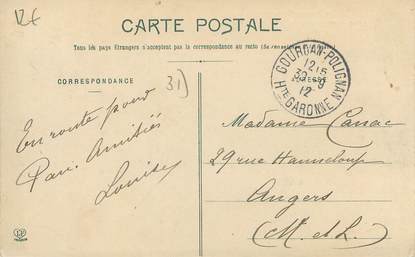 12€
CARTE POSTALE
Tous les pays Etrangers n'acceptent pas la correspondance au recto
CORRESPONDANCE
31)
GOURDAN-POLIGNAN
12 15
30 - 9
12
Hte GARONNE
En route pour
Pau. Amitiés
Louise
Madame Cassac
29 rue Hanneloup
Angers
(M. et L.)